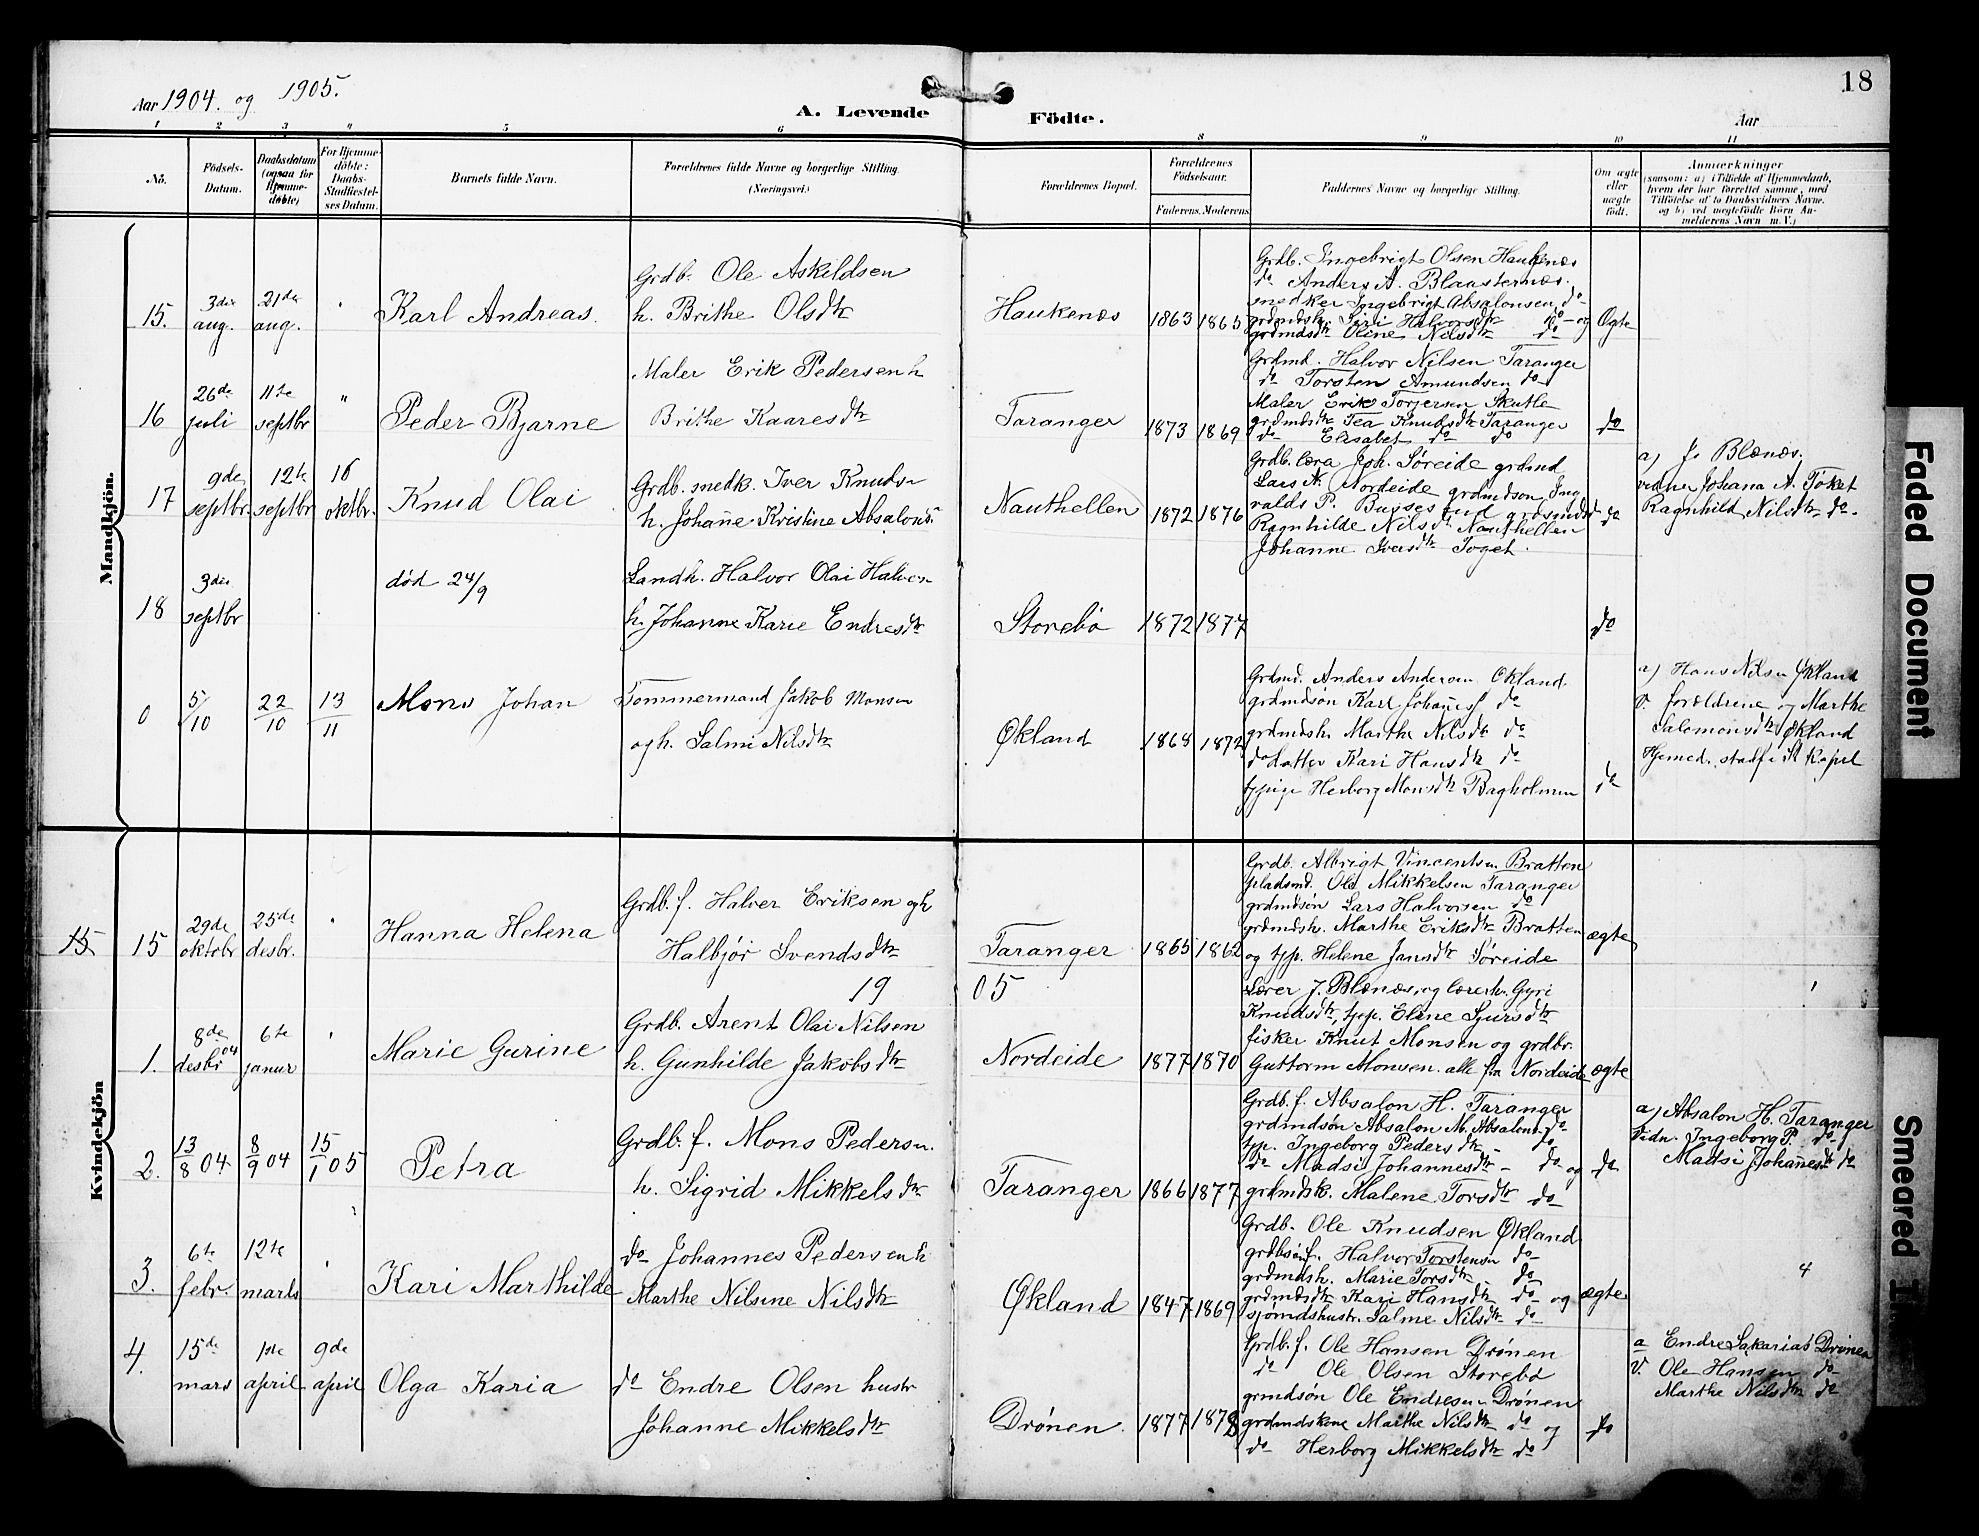 18
Aar 1904. og 1905.
A. Levende Födte.
Aar
1 2 3 4 5 6 8 9 10 11
No.
Födsels-Datum.
Daabsdatum (ogsaa for Hjemme-döbte)
For Hjemme-döbte: Daabs-Stadfæstel-ses Datum.
Barnets fulde Navn.
Forældrenes fulde Navne og borgerlige Stilling. (Næringsvei.)
Forældrenes Bopæl.
Forældrenes Födselsaar.
Faderens. Moderens.
Faddernes Navne og borgerlige Stilling.
Om ægte eller uægte födt.
Anmærkninger
(saasom: a) i Tilfælde af Hjemmedaab, hvem der har forrettet samme, med Tilföielse af to Daabsvidners Navne. og b) ved uægtefödte Börn An-melderens Navn m. V.)
Mandkjön.
15. 3die aug. 21de aug. " Karl Andreas.
Grdb. Ole Askildsen
h. Brithe Olsdtr
Haukenæs 1863 1865
Grdb. Ingebrigt Olsen Haukenæs
do Anders A. Blaasternæs.
snedker Ingebrigt Absalonsen do
grdmdsk. Siri Halvorsdtr do og
grdmdsdtr Oline Nilsdtr do
Ægte
16 26de juli 11te septbr " Peder Bjarne
Maler Erik Pedersen h
Brithe Kaaresdtr
Taranger 1873 1869
Grdmd. Halvor Nilsen Taranger
do Torsten Amundsen do
Maler Erik Torjersen Skutle
grdmdsdtr Tea Knudsdtr Taranger
do Elisabet do do
do
17 9de septbr. 12te septbr 16 oktbr. Knud Olai
Grdb. snedk. Iver Knudsn
h. Johanne Kristine Absalons.
Nauthellen 1872 1876
Grdb. Joh. Søreide grdmd
Lars A. Nordeide grdmdson Ing
valds P.
Ragnhilde Nilsdtr Nauthellen
Johanne Iversdtr
do
a) J. Blænæs.
Johana A.
Ragnhild Nilsdtr do.
18 3die septbr død 24/9
Landh. Halvor Olai Halvors
h. Johanne Karie Endresdtr
Storebø 1872 1877 do
0 5/10 22/10 13/11 Mons Johan
Tømmermand Jakob Monsen
og h. Salmi Nilsdtr
Økland 1868 1872
Grdmd. Anders Andersen Økland
grdmdsøn Karl Johannes do
grdmdsh. Marthe Nilsdtr do
do datter Kari Hansdtr do
tjpige Herborg Monsdtr Bagholmen
do
a) Hans Nilsen Økland
v. forældrene og Marthe
Salomonsdtr Økland
Hjemed. stadf i St Kapel
Kvindekjön
15 15 29de oktobr 25de desbr. " Hanna Helena
Grdb. f. Halvor Eriksen og h
Halbjør Svendsdtr
Taranger 1865 1862
Grdb. Albrigt Vincentsen Bratten
pladsmd. Ole Mikkelsen Taranger
grdmdsøn Lars Halvorsen do
grdmdsh. Marthe Eriksdtr Bratten
og tjp. Helene Jansdtr Søreide
ægte
19 05
1. 8de desbr 04 6te januar " Marie Gurine
Grdb. Arent Olai Nilsen
h. Gunhilde Jakobsdtr
Nordeide 1877 1870
Lærer J. Blænæs, og lærerh. Gyri
Knudsdtr, tjp. Eline Sjursdtr
fisker Knut Monsen og grdbr.
Guttorm Monsen. alle fra Nordeide
ægte
2. 13/8 04 8/9 04 15/1 05 Petra
Grdb. f. Mons Pedersn.
h. Sigrid Mikkelsdtr
Taranger 1866 1877
Grdb. f. Absalon H. Taranger
grdmdsøn Absalon M. Absalons. do
tjp. Ingeborg Pedersdtr - do
do Madsi Johannesdtr - do og
grdmdsk. Malene Torsdtr do
do
a) Absalon H. Taranger
Vidn. Ingeborg P. do
Madsi Johannesdtr do
3. 6te febr. 12te marts " Kari Marthilde
do Johannes Pedersen h
Marthe Nilsine Nilsdtr
Økland 1847 1869
Grdb. Ole Knudsen Økland
grdbsøn f. Halvor Torstensn do
grdmdsh. Marie Torsdtr do
grdmdsdtr Kari Hansdtr do og
sjømdshustr. Salme Nilsdtr do
ægte
4
4. 15de mars 1ste april 9de april Olga Karia
do Endre Olsen hustr
Johanne Mikkelsdtr
Drönen 1877 1878
Grdb. f. Ole Hansen Drönen
do Ole Olsen Storebø
grmdsön Ole Endresen Drönen
grdmdskone Marthe Nilsdtr do og
do Herborg Mikkelsdtr do
do
a Endre Sakarias Drönen
V. Ole Hansen do
Marthe Nilsdtr do
Faded Document
Smeared